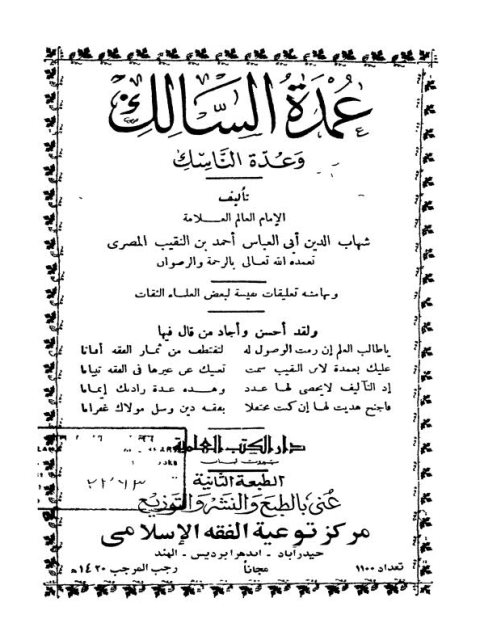 عُمْدَةُ السَّالِكِ
وَعُدّة النَّاسِكِ
تأليف
الإمام العالم العـلامة
شهاب الدين أبى العباس أحمد بن النقيب المصرى
تغمده الله تعالى بالرحمة والرضوان
وبهامشه تعليقات نفيسة لبعض العلماء الثقات
ولقد أحسن وأجاد من قال فيها
ياطالب العلم إن رمت الوصول له لتقتطف من ثمـار الفقه أفنانا
عليك بعمدة لابن النقيب سمت تغنيك عن غيرها فى الفقه تبيانا
إن التآليف لايحصى لها عـدد وهـذه عدة زادتك إيمـانا
فاجنح هديت لها إن كنت محتفلا بفقه دين وسل مولاك غفرانا
دار الكتب العلمية
بيروت لبنان
٢٢٦٦٣
الطبعة الثانية
عُنى بالطبع والنشر والتوزيع
مركز توعية الفقه الإسلامى
حيدرآباد - اندهرا برديس - الهند
تعداد ١١٠٠ مجاناً رجب المرجب ١٤٢٠ھ